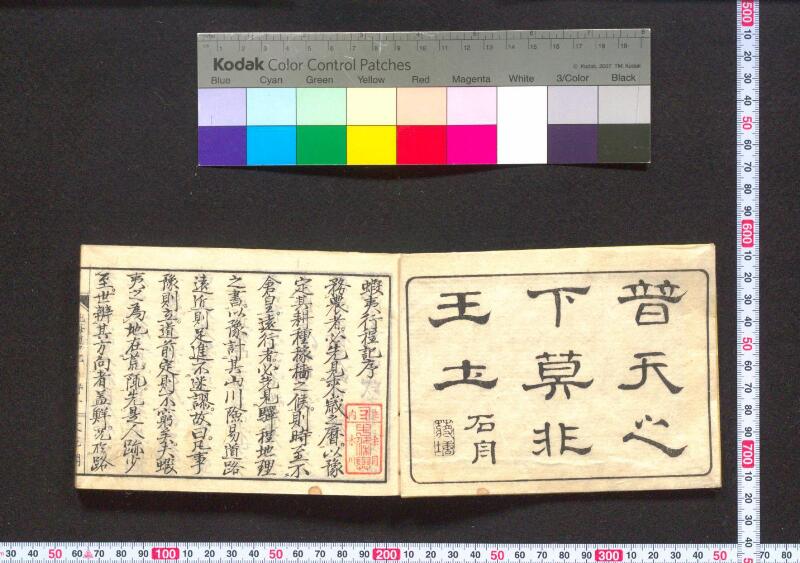 Kodak Color Control Patches
© Kodak, 2007 TM: Kodak
Blue Cyan Green Yellow Red Magenta White 3/Color Black
普天之
下莫非
王土
石月
蝦夷行程記序
務農者必先見来歳之暦以豫
定其耕種稼穡之候則時至不
倉皇遠行者必先見驛程地理
之書以豫計其山川險易道路
遠近則足進不迷謬故曰凡事
豫則立道前定則不窮乎夫蝦
夷之為地在荒陬先是人跡少
至世辨其方向者益鮮况於路